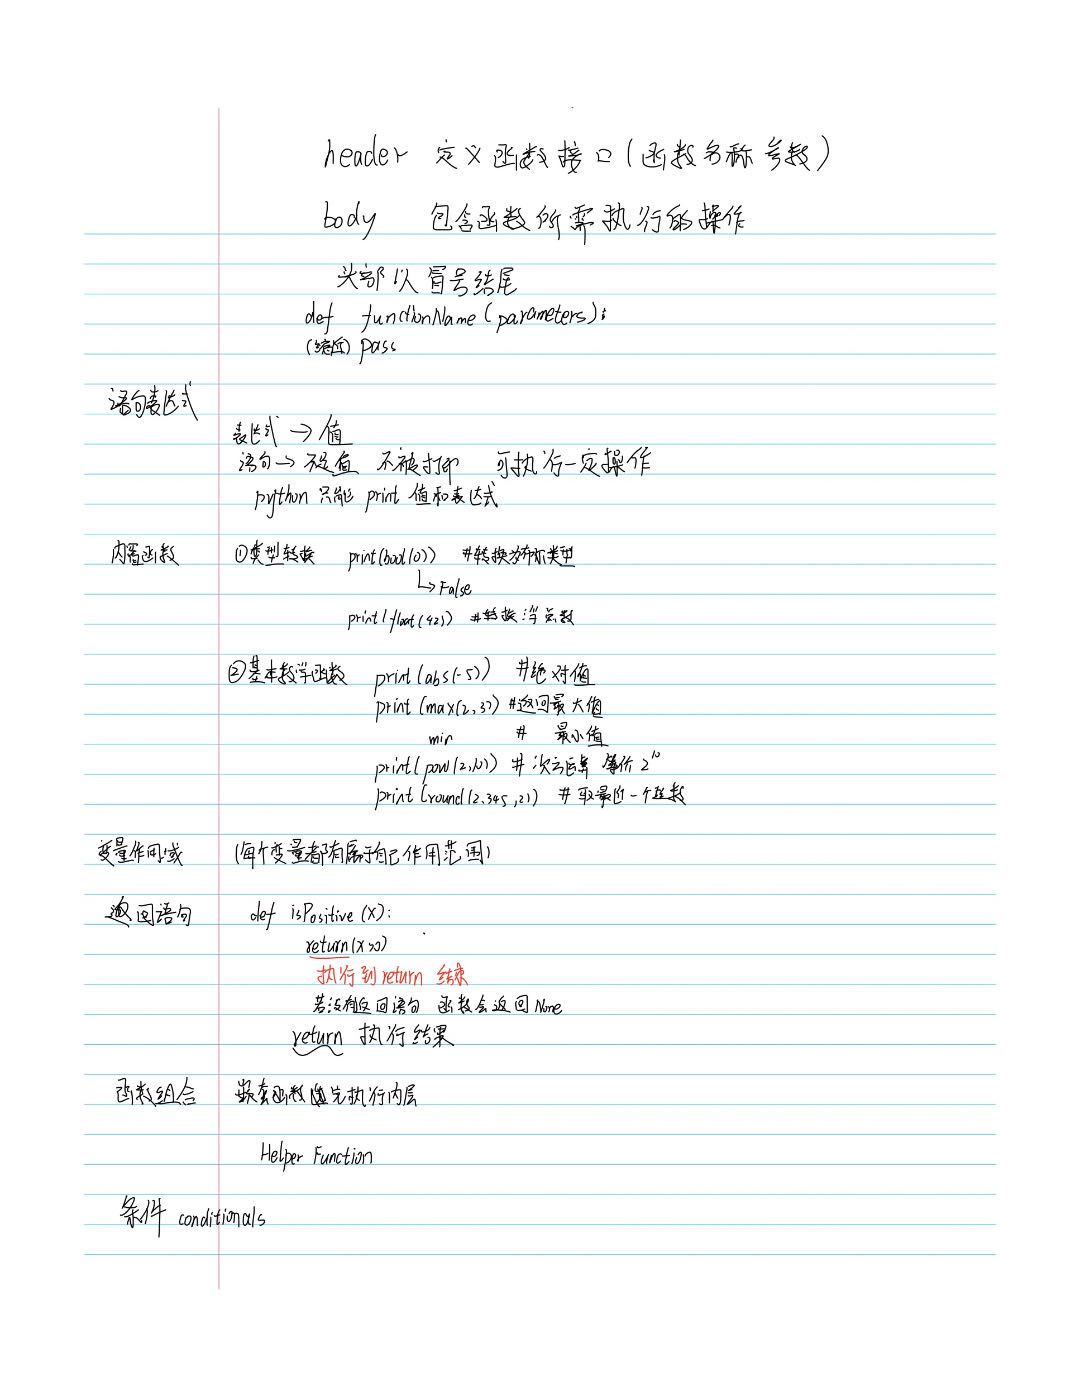 header 定义函数接口(函数名称 参数)
body 包含函数所需执行的操作
头部以冒号结尾
def functionName(parameters):
(缩进) pass
语句表达式
表达式 → 值
语句 → 不是值 不被打印 可执行一定操作
python 只能 print 值和表达式
内置函数 ①类型转换 print(bool(0)) #转换为布尔类型
↳ False
print(float(42)) #转换浮点数
②基本数学函数 print(abs(-5)) #绝对值
print(max(2,3)) #返回最大值
min # 最小值
print(pow(2,10)) # 次方运算 等价 2^10
print(round(2.345,2)) # 取最近一个整数
变量作用域 (每个变量都有属于自己作用范围)
返回语句 def isPositive(x):
return(x>0)
执行到return 结束
若没有返回语句 函数会返回None
return 执行结果
函数组合 嵌套函数 先执行内层
Helper Function
条件 conditionals